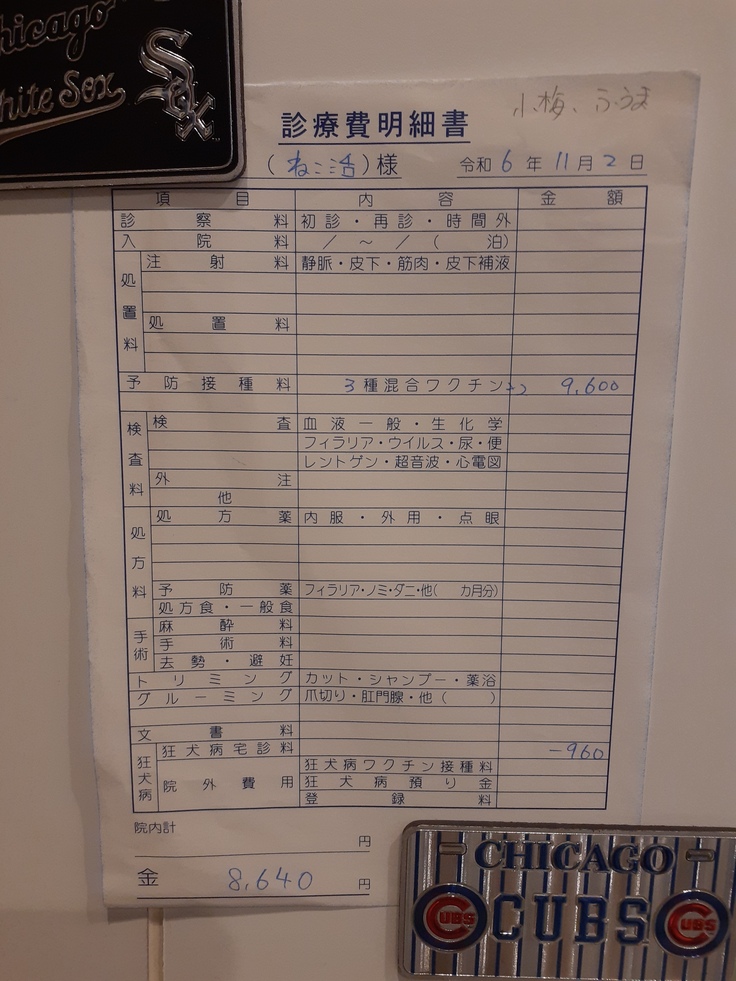 Chicago
White Sox
Sox
小梅、ふうま
診療費明細書
(ねこ活)様 令和 6 年 11 月 2 日
項目 内容 金額
診察料 初診・再診・時間外
入院料 / ～ / ( 泊)
処置料 注射料 静脈・皮下・筋肉・皮下補液
処置料
予防接種料 3種混合ワクチン×2 9,600
検査料 検査 血液一般・生化学
フィラリア・ウイルス・尿・便
レントゲン・超音波・心電図
外注
他
処方料 処方薬 内服・外用・点眼
予防薬 フィラリア・ノミ・ダニ・他( カ月分)
処方食・一般食
手術 麻酔料
手術料
去勢・避妊
トリミング カット・シャンプー・薬浴
グルーミング 爪切り・肛門腺・他( )
文書料
狂犬病 狂犬病宅診料 -960
院外費用 狂犬病ワクチン接種料
狂犬病預り金
登録料
院内計 円
金 8,640 円
CHICAGO
CUBS CUBS CUBS